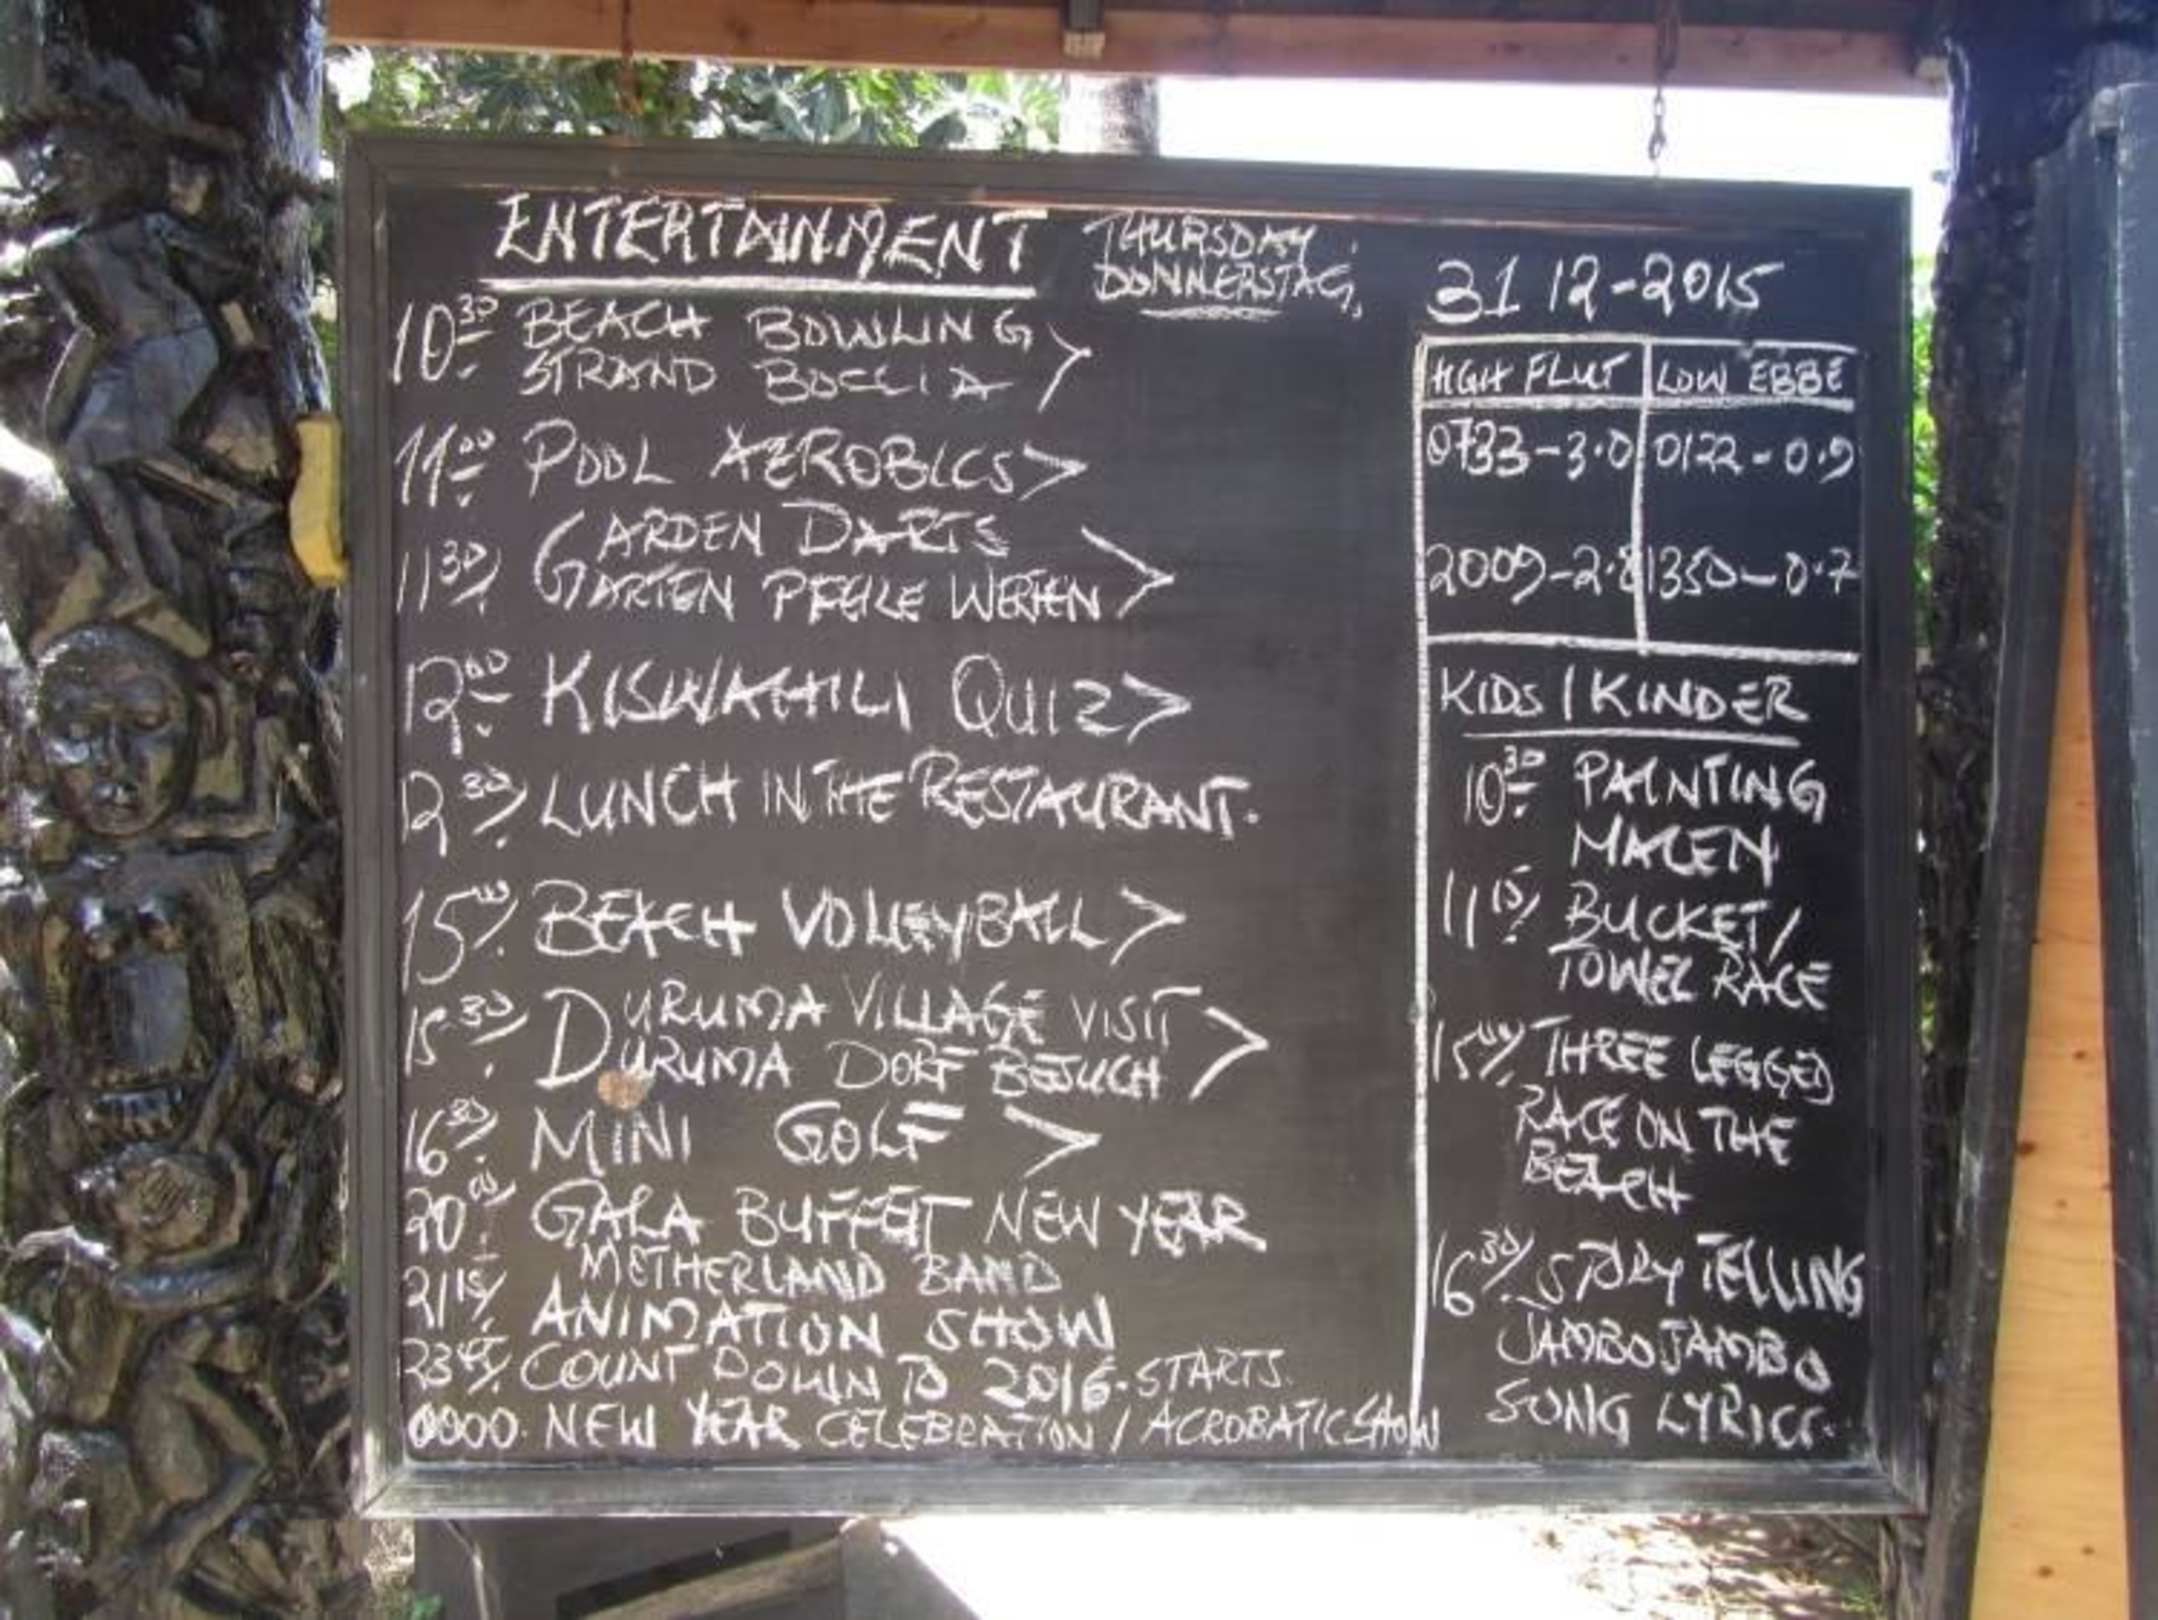 ENTERTAINMENT THURSDAY
DONNERSTAG,
31 12-2015
10 30 BEACH BOWLING
STRAND BOCCIA
11 00 POOL AEROBICS
11 30 GARDEN DARTS
GARTEN PFEILE WERFEN
12 00 KISWAHILI QUIZ
12 30 LUNCH IN THE RESTAURANT.
15 00 BEACH VOLLEYBALL
15 30 DURUMA VILLAGE VISIT
DURUMA DORF BESUCH
16 30 MINI GOLF
20 00 GALA BUFFET NEW YEAR
METHERLAND BAND
21 15 ANIMATION SHOW
23 45 COUNT DOWN TO 2016-STARTS.
0000. NEW YEAR CELEBRATION / ACROBATIC SHOW
HIGH FLUT LOW EBBE
0733-3.0 0122-0.9
2009-2.8 1350-0.7
KIDS / KINDER
10 30 PAINTING
MALEN
11 15 BUCKET/
TOWEL RACE
15 00 THREE LEGGED
RACE ON THE
BEACH
16 30 STORY TELLING
JAMBO JAMBO
SONG LYRICS.